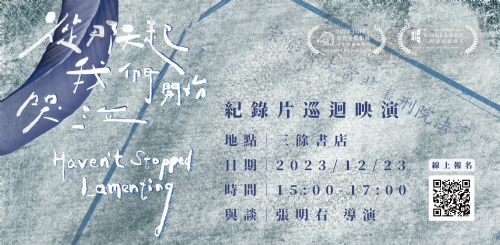 從那天起
我們開始
哭泣
Haven't Stopped
Lamenting
紀錄片巡迴映演
地點 | 三餘書店
日期 | 2023/12/23
時間 | 15:00-17:00
與談 | 張明右 導演
線上報名